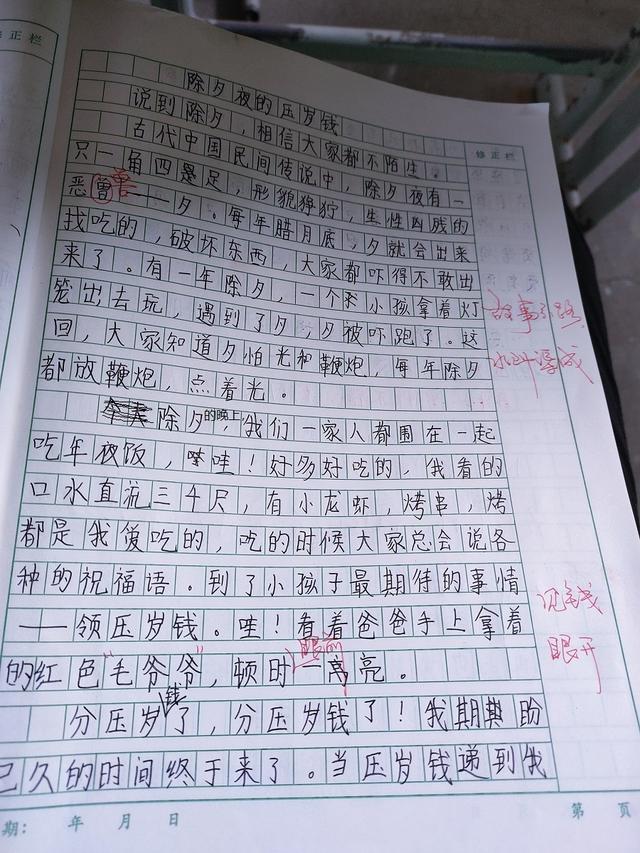 修正栏
除夕夜的压岁钱
说到除夕，相信大家都不陌生。
古代中国民间传说中，除夕夜有一
只一角四足，形貌狰狞，生性凶残的
恶兽——夕。每年腊月底，夕就会出来
找吃的，破坏东西，大家都吓得不敢出
来了。有一年除夕，一个小孩拿着灯
笼出去玩，遇到了夕，夕被吓跑了。这
回，大家知道夕怕光和鞭炮，每年除夕
都放鞭炮，点着光。
除夕的晚上，我们一家人都围在一起
吃年夜饭，哇！好多好吃的，我看的
口水直流三千尺，有小龙虾，烤串，烤
都是我爱吃的，吃的时候大家总会说各
种的祝福语。到了小孩子最期待的事情
——领压岁钱。哇！看着爸爸手上拿着
的红色“毛爷爷”，顿时眼前一亮。
分压岁钱了，分压岁钱了！我期盼
已久的时间终于来了。当压岁钱递到我
修正栏
故事引路
水到渠成
见钱
眼开
期：　年　月　日
第　页